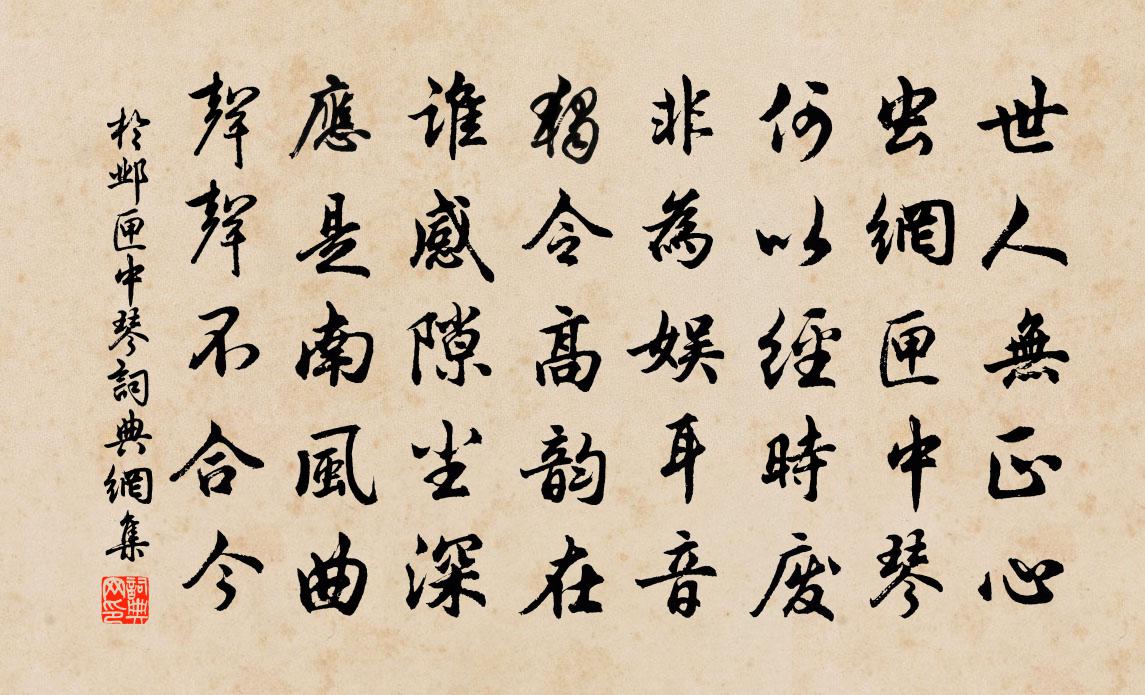 世人無正心
虫網匣中琴
何以經時廢
非為娛耳音
獨令高韵在
誰感隙尘深
應是南風曲
聲聲不合今
於邺匣中琴詞典網集
詞典網印